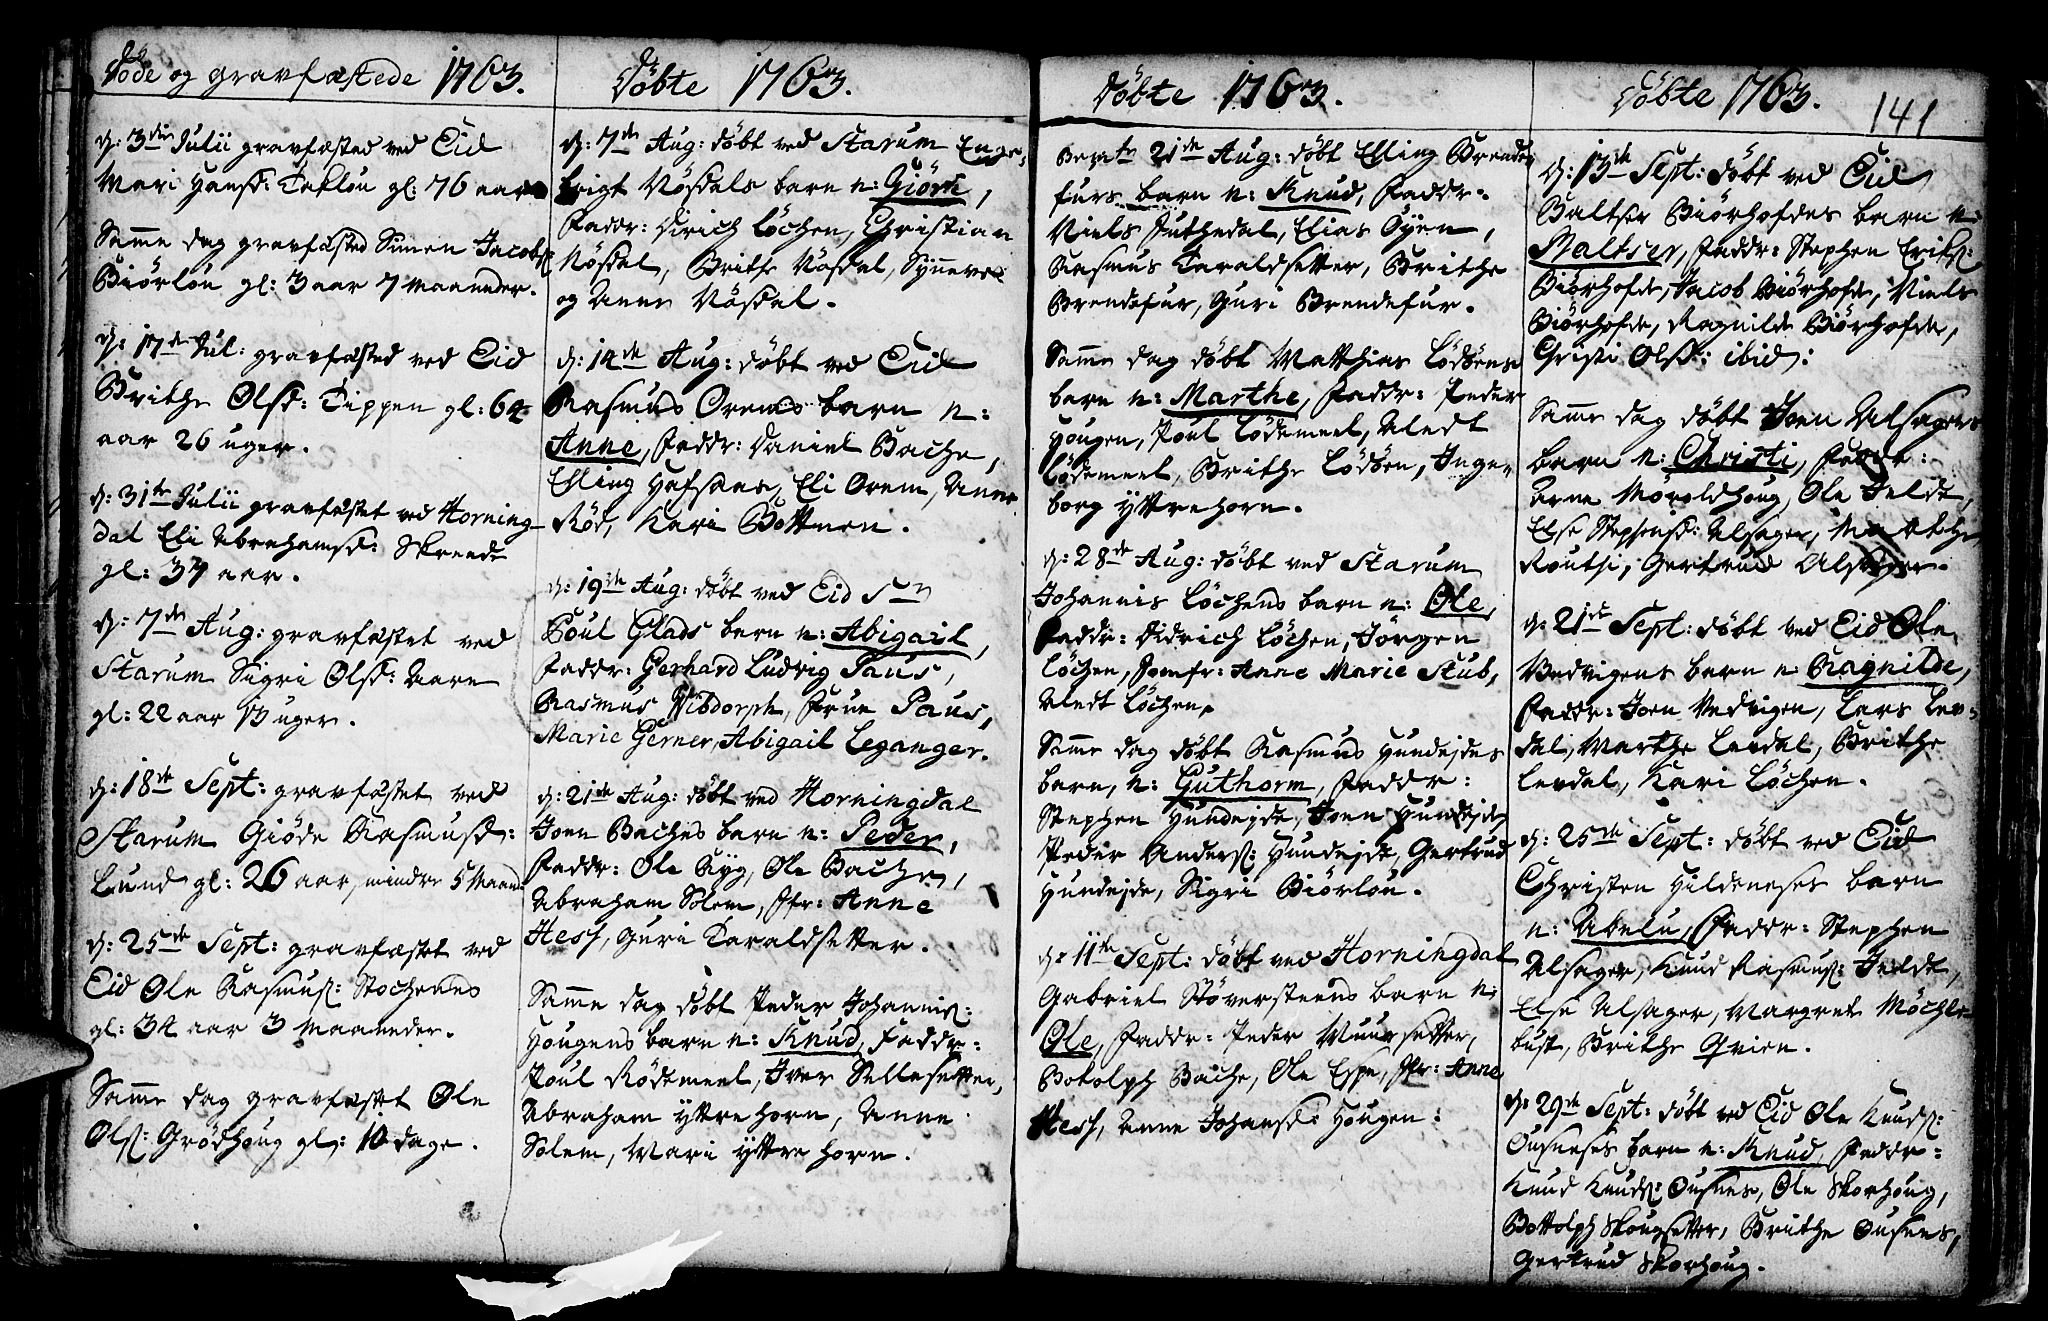 Døde og gravfæstede 1763.
d: 3die Julii gravfæsted ved Eid
Mari Hansd: Taklou gl: 76 aar
Samme dag gravfæsted Simen Jacobs:
Biørlou gl: 3 aar 7 maaneder.
d: 17de Jul: gravfæsted ved Eid
Brithe Olsd: Tippen gl: 64
aar 26 uger.
d: 31te Julii gravfæstet ved Horning
dal Eli Abrahamsd: Skreede
gl: 37 aar.
d: 7de Aug: gravfæstet ved
Starum Sigri Olsd: Aarn
gl: 22 aar 13 uger.
d: 18de Sept: gravfæstet ved
Starum Giøde Rasmusd:
Lund gl: 26 aar, mindre 5 Maan
d: 25de Sept: gravfæstet ved
Eid Ole Rasmus: Stochenes
gl: 34 aar 3 maaneder.
Samme dag gravfæstet Ole
Ols: Grødhoug gl: 10 dage.
Døbte 1763.
d: 7de Aug: døbt ved Starum Enge,
brigt Nøsdals barn n: Giøri,
Faddr: Dirich Løchen, Christian
Nøsdal, Brithe Nøsdal, Synneve
og Anne Nøsdal.
d: 14de Aug: døbt ved Eid
Rasmus Orems barn n:
Anne, Faddr: Daniel Bache,
Elling Hafsaas, Eli Orem, Anne
Rød, Kari Bottnen.
d: 19de Aug: døbt ved Eid Sr
Poul Glads barn n: Abigail,
Faddr: Gerhard Ludvig Paus,
Rasmus Wibdorph, Frue Paus,
Marie Gerner, Abigail Leganger.
d: 21de Aug: døbt ved Horningdal
Joen Baches barn n: Peder,
Faddr: Ole Ryg, Ole Bache,
Abraham Solem, Jfr: Anne
Hess, Guri Taraldsetter.
Samme dag døbt Peder Johannis:
Hougens barn n: Knud, Faddr:
Poul Rødemeel, Iver Sellesetter,
Abraham Yttrehorn, Anne
Solem, Mari Yttrehorn.
Døbte 1763.
bemte 21de Aug: døbt Elling Brende
furs barn n: Knud, Faddr:
Niels Juthedal, Elias Øyen,
Rasmus Taraldsetter, Brithe
Brendefur, Guri Brendefur.
Samme dag døbt Matthias Lødøens
barn n: Marthe, Faddr: Peder
Hougen, Poul Lødemeel, Aledt
Lødemeel, Brithe Lødøen, Inge-
borg Yttrehorn.
d: 28de Aug: døbt ved Starum
Johannis Løchens barn n: Ole,
Faddr: Didrich Løchen, Jørgen
Løchen, Jomfr: Anne Marie Stub,
Aledt Løchen.
Samme dag døbt Rasmus Hundejdes
barn, n: Guthorm, Faddr:
Stephen Hundejde, Joen Hundejde
Peder Anders: Hundejde, Gertrud
Hundejde, Sigri Biørlou.
d: 11te Sept: døbt ved Horningdal
Gabriel Støversteens barn n:
Ole, Faddr: Peder Muursetter,
Botolph Bache, Ole Espe, Jfr: Anne
Hess, Anne Johansd: Hougen:
Døbte 1763. 141
d: 13de Sept: døbt ved Eid
Baltser Biørhofdes barn n:
Maltser, Faddr: Stephen Eriks:
Biørhofde, Jacob Biørhofde, Niels
Biørhofde, Ragnilde Biørhofde,
Christi Olsd: ibid:
Samme dag døbt Joen Alsagers
barn n: Christi, Faddr:
Arne Møroldhoug, Ole Jelde,
Else Stephensd: Alsager, Marthe
Routhi, Gertrud Alsager.
d: 21de Sept: døbt ved Eid Ole
Vedvigens barn n: Ragnilde,
Faddr: Joen Vedvigen, Lars Lev-
dal, Marthe Levdal, Brithe
Levdal, Kari Løchen.
d: 25de Sept: døbt ved Eid
Christen Hildeneses barn
n: Abelu, Faddr: Stephen
Alsager, Knud Rasmus: Jelde,
Else Alsager, Margret Møchle-
bust, Brithe Qvien.
d: 29de Sept: døbt ved Eid Ole Knuds:
Ousneses barn n: Knud, Faddr:
Knud Knuds: Ousnes, Ole Skorhoug,
Bottolph Skougsetter, Brithe Ousnes,
Gertrud Skorhoug.